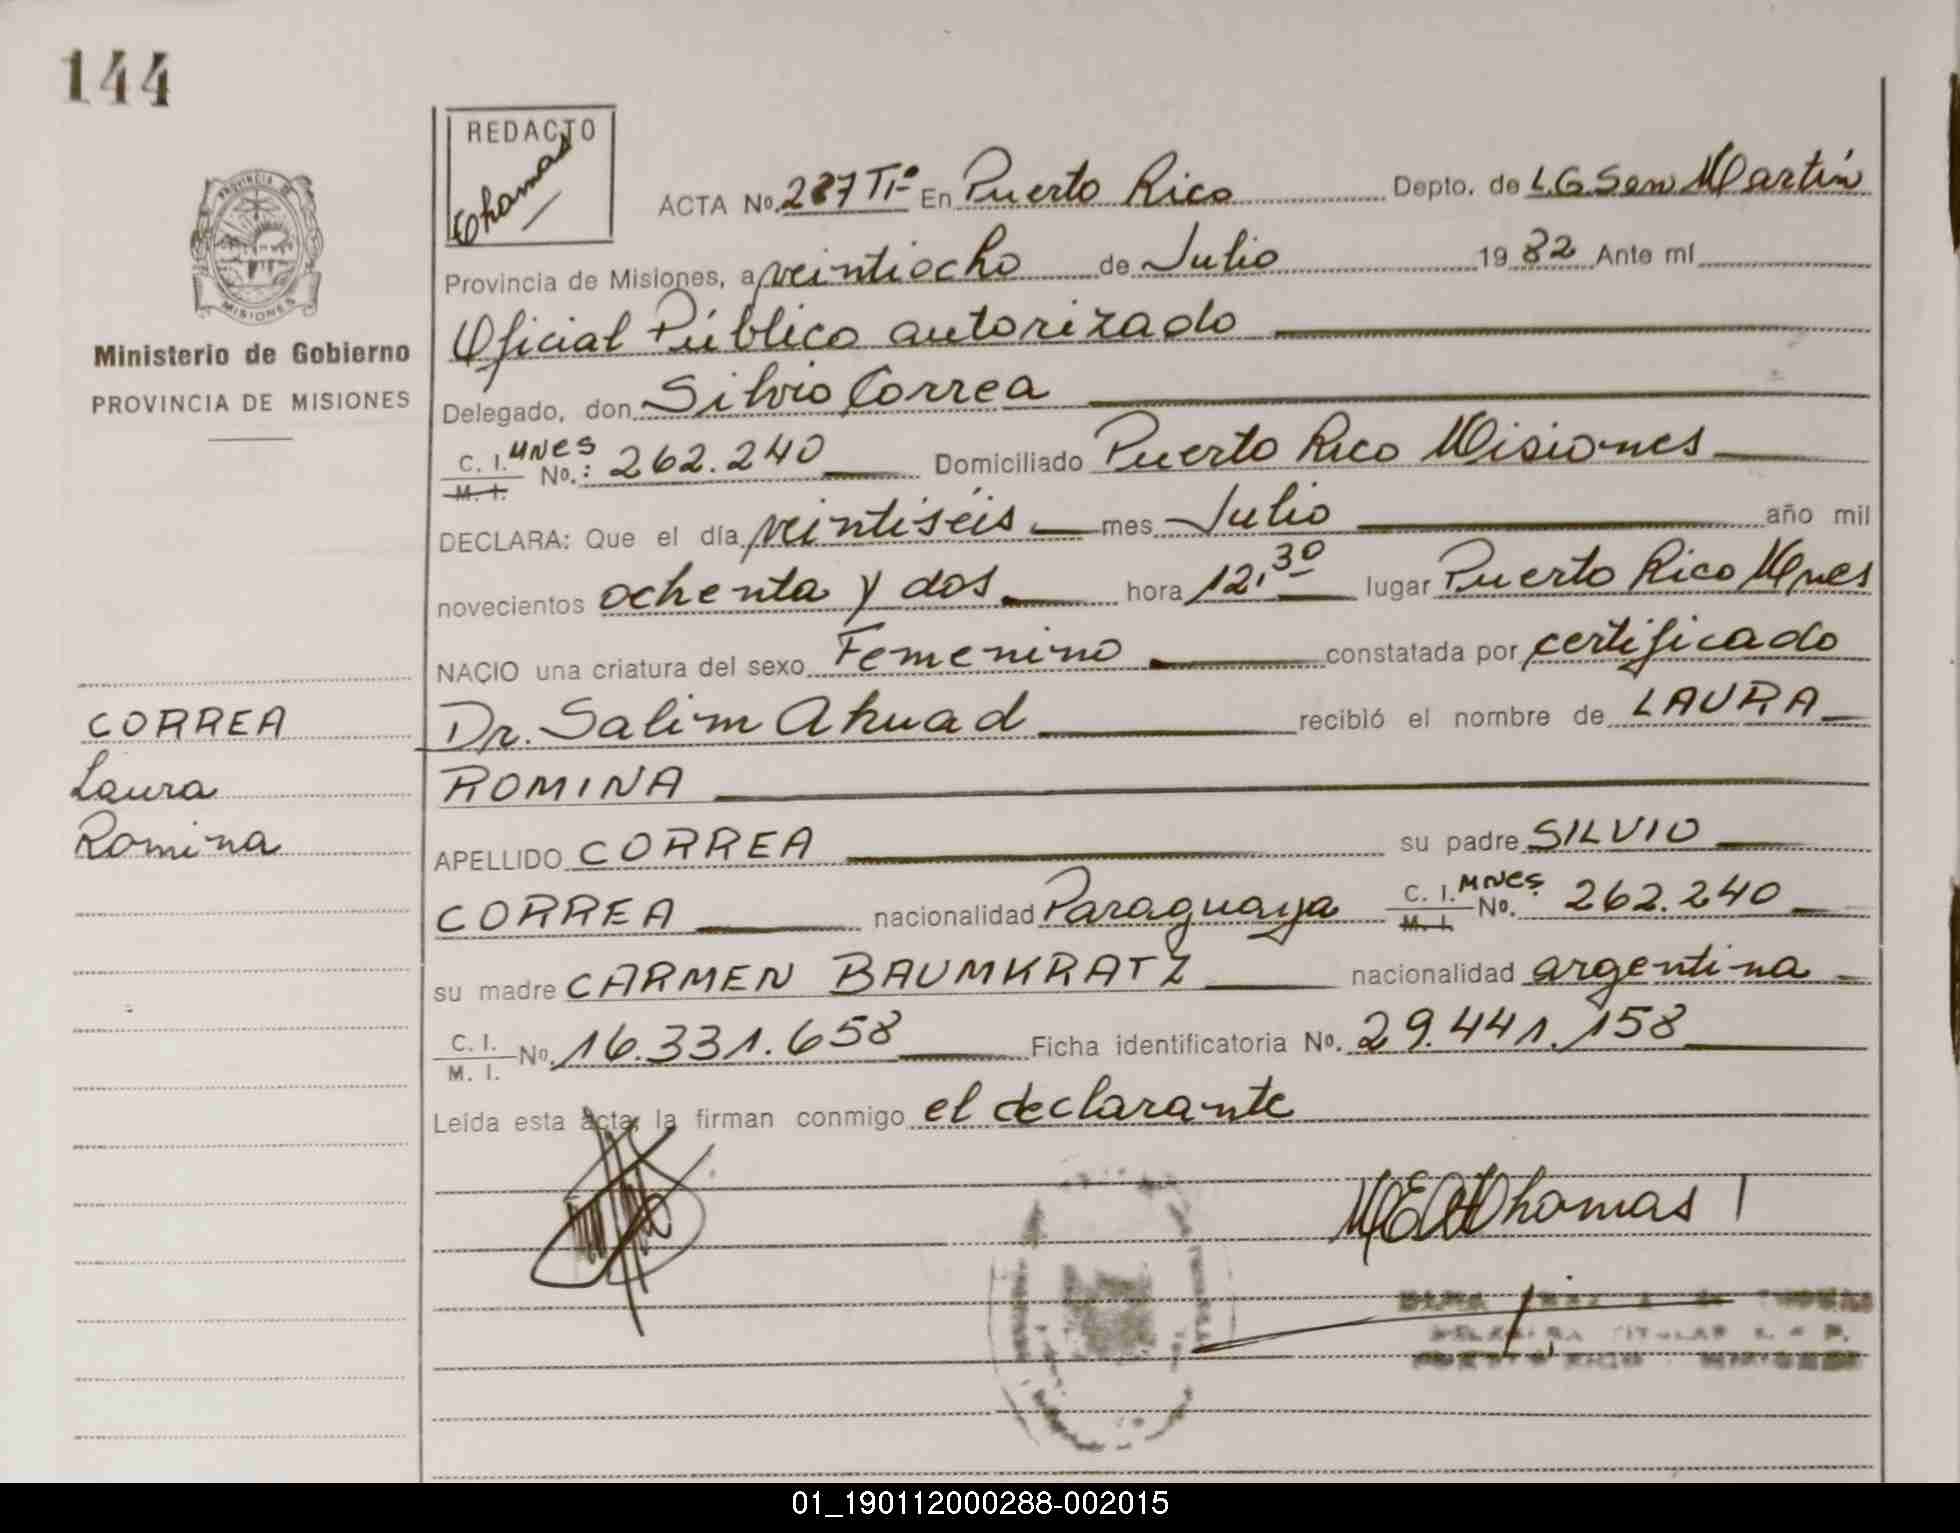 144
REDACTO
Thomas
ACTA No. 287 Tº En Puerto Rico Depto. de L.G.San Martín
Provincia de Misiones, a veintiocho de Julio 19 82 Ante mí
Oficial Público autorizado
Delegado, don Silvio Correa
C. I. MNES
M. I. No.: 262.240 Domiciliado Puerto Rico Misiones
DECLARA: Que el día veintiséis mes Julio año mil
novecientos ochenta y dos hora 12.30 lugar Puerto Rico Mnes
NACIO una criatura del sexo Femenino constatada por certificado
Dr. Salim Ahuad recibió el nombre de LAURA
ROMINA
APELLIDO CORREA su padre SILVIO
CORREA nacionalidad Paraguaya C. I. MNES. M. I. No. 262.240
su madre CARMEN BAUMKRATZ nacionalidad argentina
C. I. M. I. No. 16.331.658 Ficha identificatoria No. 29.441.158
Leída esta acta, la firman conmigo el declarante
Thomas
PUERTO RICO MISIONES
PROVINCIA DE
MISIONES
Ministerio de Gobierno
PROVINCIA DE MISIONES
CORREA
Laura
Romina
01_190112000288-002015